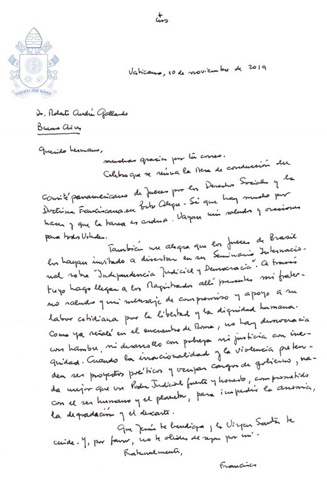 Vaticano, 10 de noviembre de 2019
Dr. Roberto Andrés Gallardo
Buenos Aires
Querido hermano,
muchas gracias por tu correo.
Celebro que se reúna la Mesa de conducción del
Comité panamericano de Jueces por los Derechos Sociales y la
Doctrina Franciscana en Porto Alegre. Sé que hay mucho por
hacer y que la tarea es ardua. Vayan mis saludos y oraciones
para todos Ustedes.
También me alegra que los Jueces de Brasil
los hayan invitado a disertar en su Seminario Internacio-
nal sobre "Independencia Judicial y Democracia". A través
tuyo hago llegar a los Magistrados allí presentes mi frater-
no saludo y mi mensaje de compromiso y apoyo a su
labor cotidiana por la libertad y la dignidad humana.
Como ya señalé en el encuentro de Roma, no hay democracia
con hambre, ni desarrollo con pobreza ni justicia en ine-
quidad. Cuando la irracionalidad y la violencia preten-
den ser proyectos políticos y ocupan cargos de gobierno, na-
da mejor que un Poder Judicial fuerte y honesto, comprometido
con el ser humano y el planeta, para impedir la anomia,
la degradación y el descarte.
Que Jesús te bendiga y la Virgen Santa te
cuide. Y, por favor, no te olvides de rezar por mí.
Fraternalmente,
Francisco